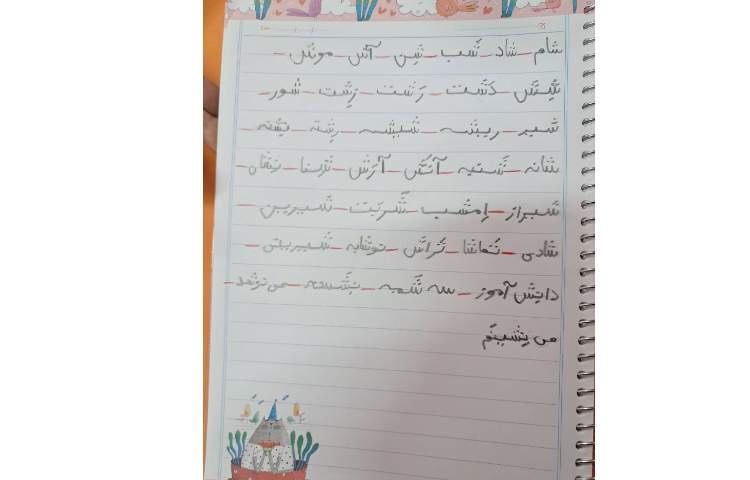 شام - شاد - شَب - شِن - آش - موش -
شیشِش - دَشت - رَشت - زِشت - شور -
شیر - ریشه - شیشه - رِشته - تِشنه -
شانه - نَشسته - آتَش - آرَش - شِنا - نِشان -
شیراز - اِمشَب - شَربَت - شیرین -
شادی - تَماشا - تَراش - نوشابه - شیرینی -
دانِش آموز - سه شَنبه - نِشَسته - می نِوشَد -
می نِشینَم